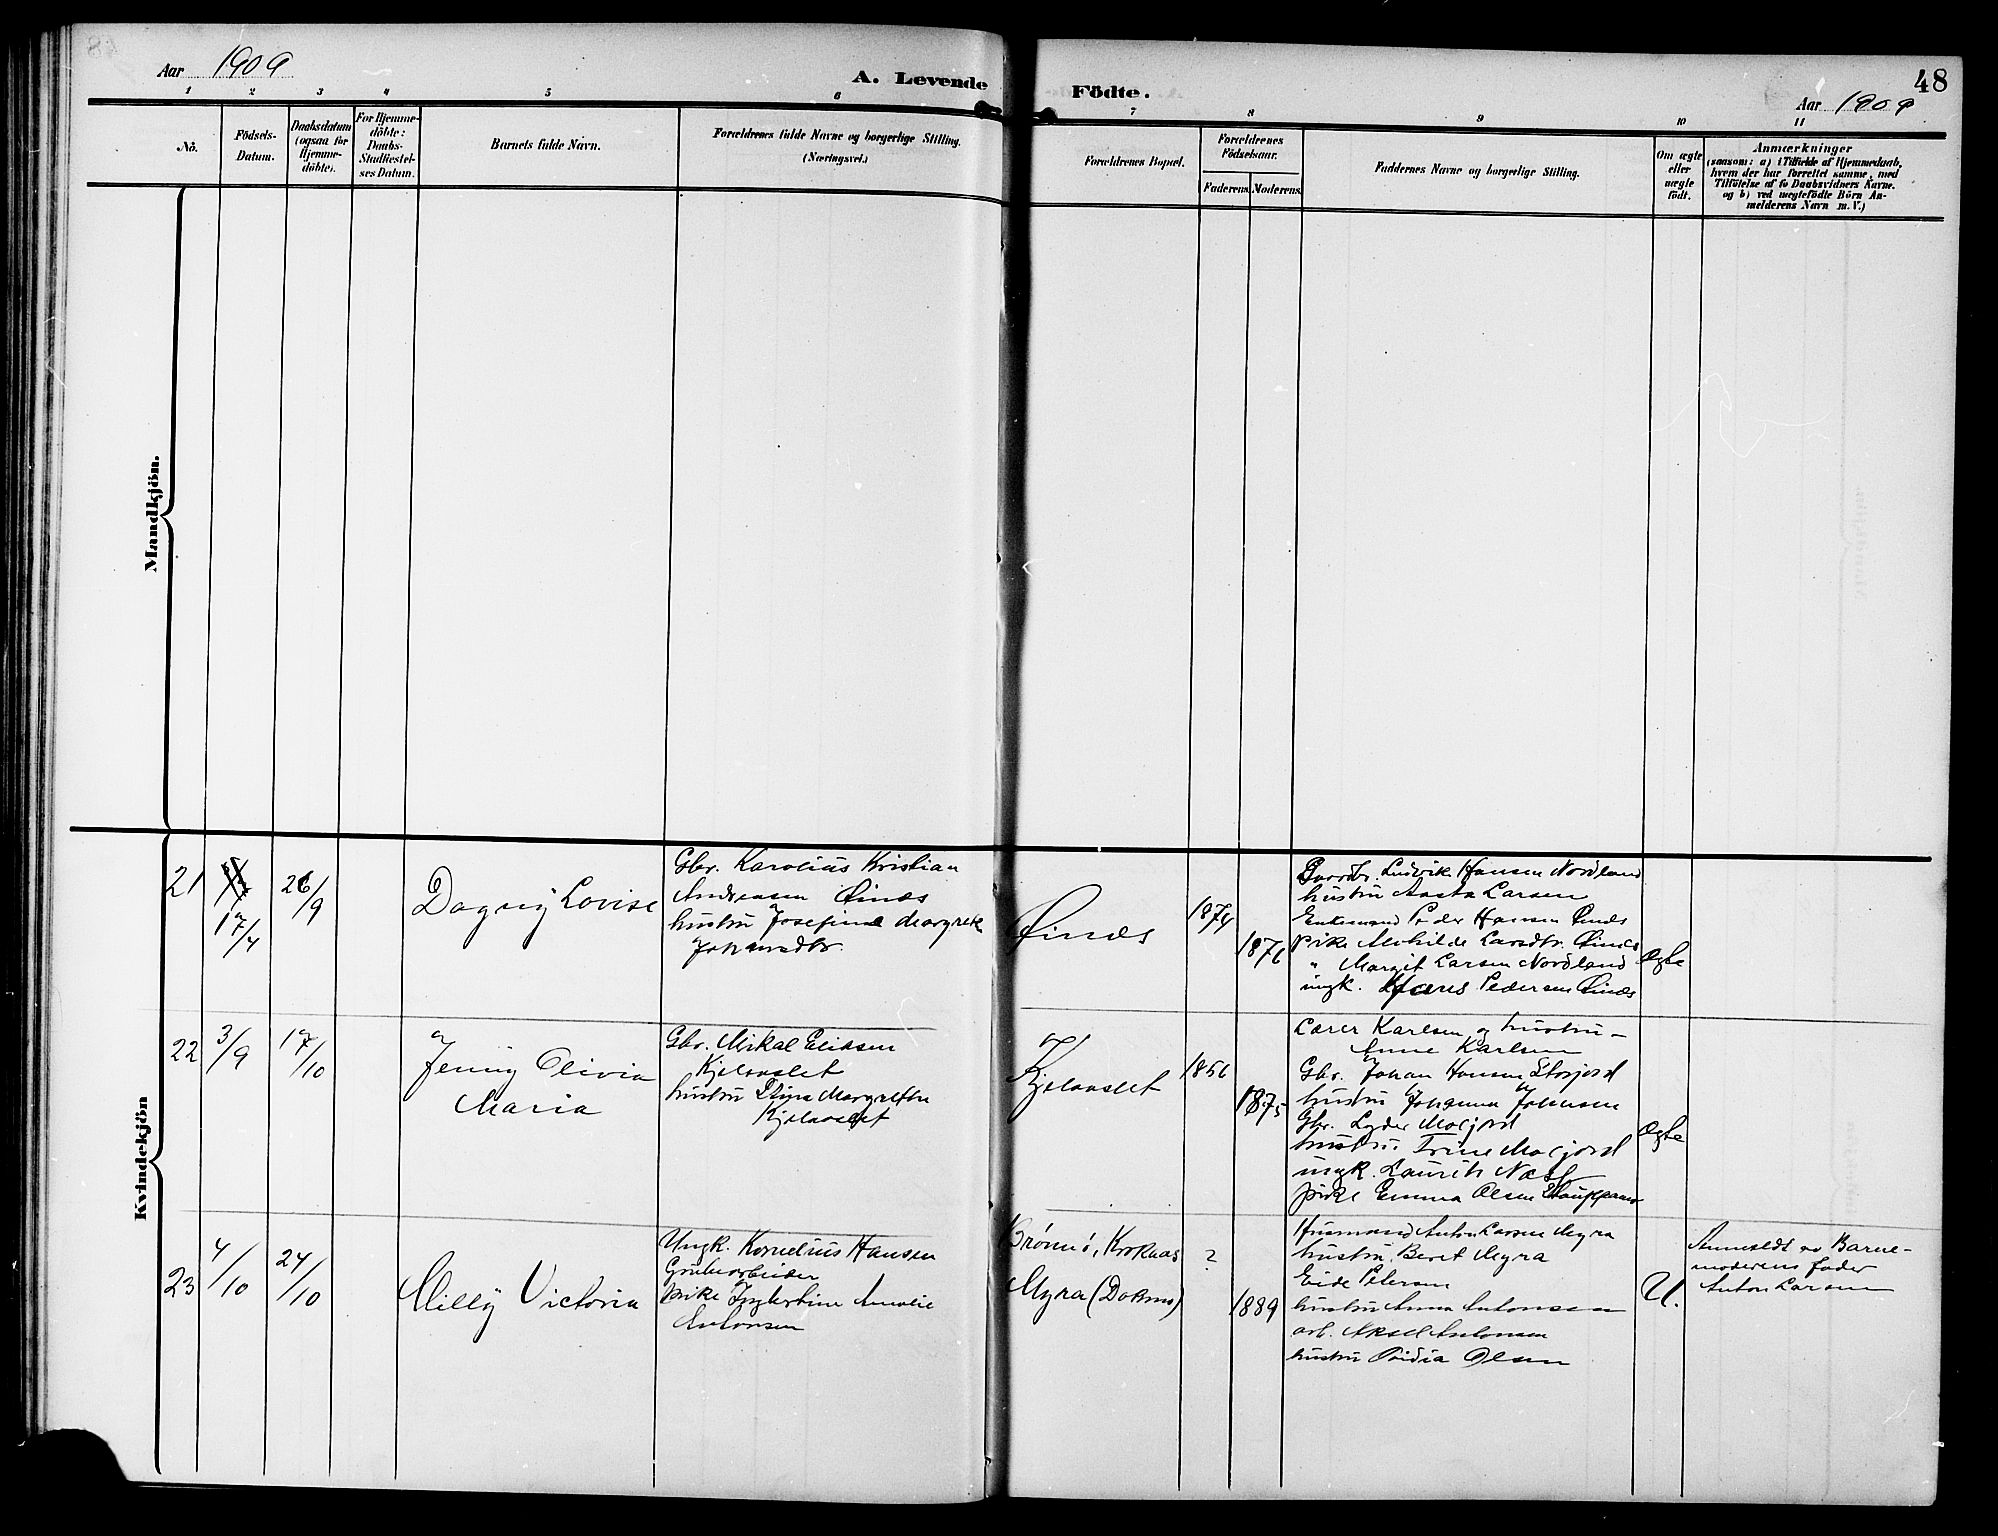 Aar 1909
A. Levende
Födte.
Aar 1909
48
1 2 3 4 5 6 7 8 9 10 11
No.
Födsels-
Datum.
Daabsdatum
(ogsaa for
Hjemme-
döbte).
For Hjemme-
döbte:
Daabs-
Stadfæstel-
ses Datum.
Barnets fulde Navn.
Forældrenes fulde Navne og borgerlige Stilling.
(Næringsvei.)
Forældrenes Bopæl.
Forældrenes
Födselsaar.
Faderens. Moderens.
Faddernes Navne og borgerlige Stilling.
Om ægte
eller
uægte
födt.
Anmærkninger
(saasom: a) i Tilfælde af Hjemmedaab,
hvem der har forrettet samme, med
Tilföielse af to Daabsvidners Navne.
og b) ved uægtefödte Börn An-
melderens Navn m. V.)
Mandkjön.
Kvindekjön
21
17/7
26/9
Dagny Lovise
Gbr. Karolius Kristian
Andreasen Øinæs
hustru Josefine Margrete
Johansdtr.
Øinæs
1874
1876
Gaardbr. Ludvik Hansen Nordland
hustru Aasta Larsen
Enkemand Peder Hansen Øinæs
Pike Larsdtr. Øinæs
" Margit Larsen Nordland
ungk. Hans Pedersen Øinæs
Ægte
22
3/9
17/10
Jenny Olivia
Maria
Gbr. Mikal Eliasen
hustru Stina Margrethe
1875
Lærer Karlsen og hustru –
Anne Karlsen
Gbr. Johan Hansen Storjord
hustru Johanna Johansen
Gbr. Lyder
hustru Trine
ungk. Laurits
pike Emma Olsen
Ægte
23
4/10
24/10
Milly Victoria
Ungk. Kornelius Hansen
Grubearbeider
pike Ingbertine Amalie
Antonsen
Brönnö,
Myra
?
1889
Husmand Anton Larsen Myra
hustru Beret Myra
Petersen
hustru Anna Antonsen
arb. Aksel Antonsen
hustru Olsen
U.
Anmeldt av Barne-
moderens fader
Anton Larsen